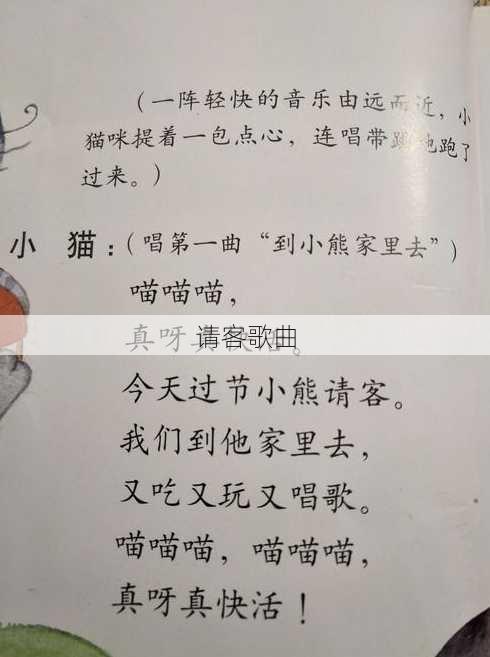 （一阵轻快的音乐由远而近，小
猫咪提着一包点心，连唱带跳地跑了
过来。）
小 猫：（唱第一曲“到小熊家里去”）
喵喵喵，
真呀真快活。
请客歌曲
今天过节小熊请客。
我们到他家里去，
又吃又玩又唱歌。
喵喵喵，喵喵喵，
真呀真快活！